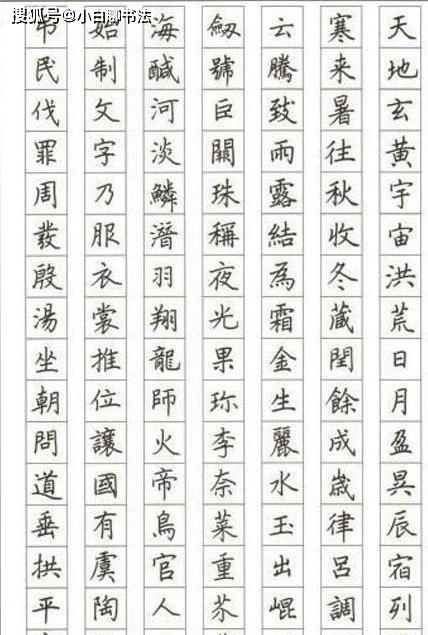 搜狐号@小白聊书法
天地玄黄宇宙洪荒日月盈昃辰宿列
寒来暑往秋收冬蔵閏餘成歲律呂調
云騰致雨露結為霜金生麗水玉出崐
劔號巨闕珠稱夜光果珎李奈菜重芥
海醎河淡鱗潛羽翔龍師火帝鳥官人
始制文字乃服衣裳推位讓國有虞陶
弔民伐罪周發殷湯坐朝問道垂拱平